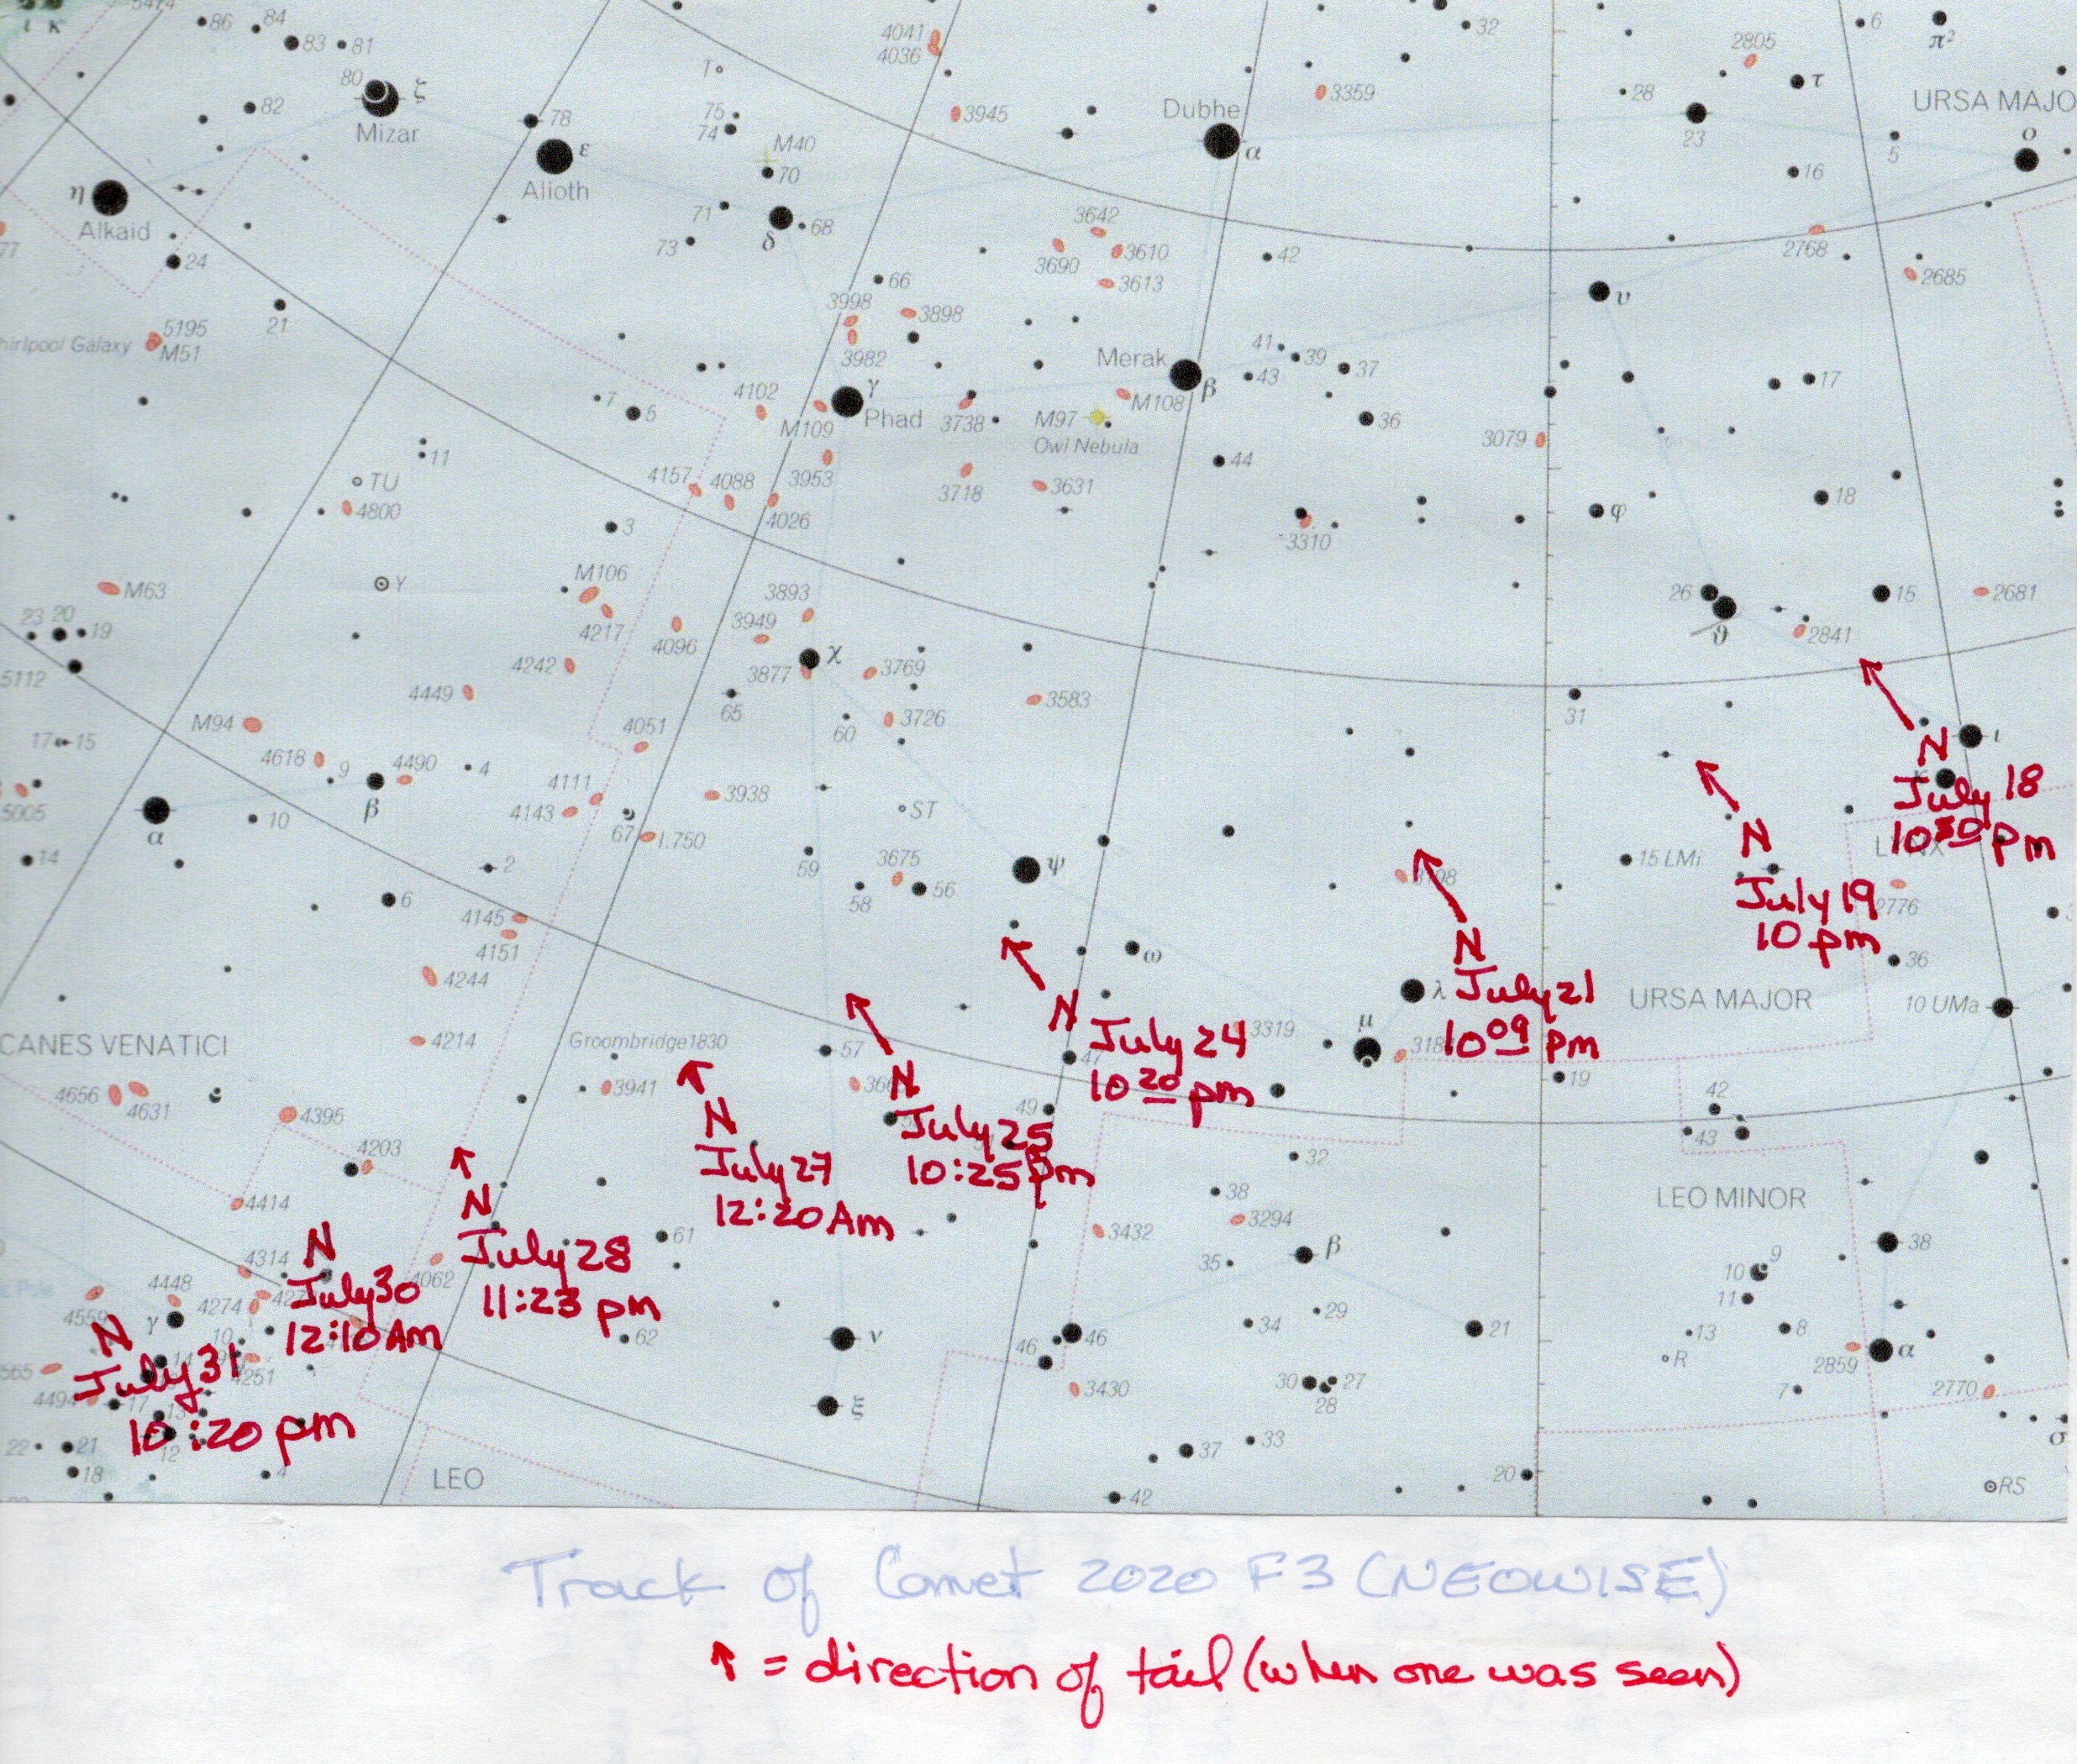 86
84
83
81
80 ζ
Mizar
82
78
ε
Alioth
η
Alkaid
24
21
5195
M51
T
75
74
M40
70
71
68
δ
73
66
4041
4036
3945
Dubhe
α
3359
32
2805
28
23
τ
16
6
π²
URSA MAJO
ο
5
3642
3690
3610
3613
42
2768
2685
υ
3998
3898
3982
γ
Phad
4102
M109
3738
Merak
β
M108
M97
Owl Nebula
41
39
43
37
36
44
3079
17
18
7
5
11
TU
4800
4157
4088
3953
4026
3718
3631
3
3310
φ
M63
Y
M106
4217
4096
3893
3949
χ
3877
3769
26
ϑ
15
2841
2681
23 20
19
5112
4242
4449
M94
4618
9
4490
β
4
17
15
4051
65
60
3726
3583
31
ι
4111
4143
3938
67
I.750
ST
5005
α
10
14
2
6
59
3675
56
58
ψ
15 LMi
4145
4151
4244
4214
ω
λ
μ
2776
36
10 UMa
URSA MAJOR
CANES VENATICI
Groombridge 1830
3941
57
47
49
3319
19
42
43
4656
4631
4395
4203
4414
4314
4448
4559
γ
4274
4062
4251
61
62
ν
ξ
3432
38
3294
32
35
β
29
34
46
46
3430
30
27
28
33
37
42
21
20
LEO MINOR
9
10
11
13
R
8
7
38
α
2859
2770
σ
RS
4494
17
12
22
21
18
4
LEO
N
July 18
10 30 pm
N
July 19
10 pm
N
July 21
10 09 pm
N
July 24
10 20 pm
N
July 25
10:25 pm
N
July 27
12:20 Am
N
July 28
11:23 pm
N
July 30
12:10 Am
N
July 31
10:20 pm
Track of Comet 2020 F3 (NEOWISE)
↑ = direction of tail (when one was seen)